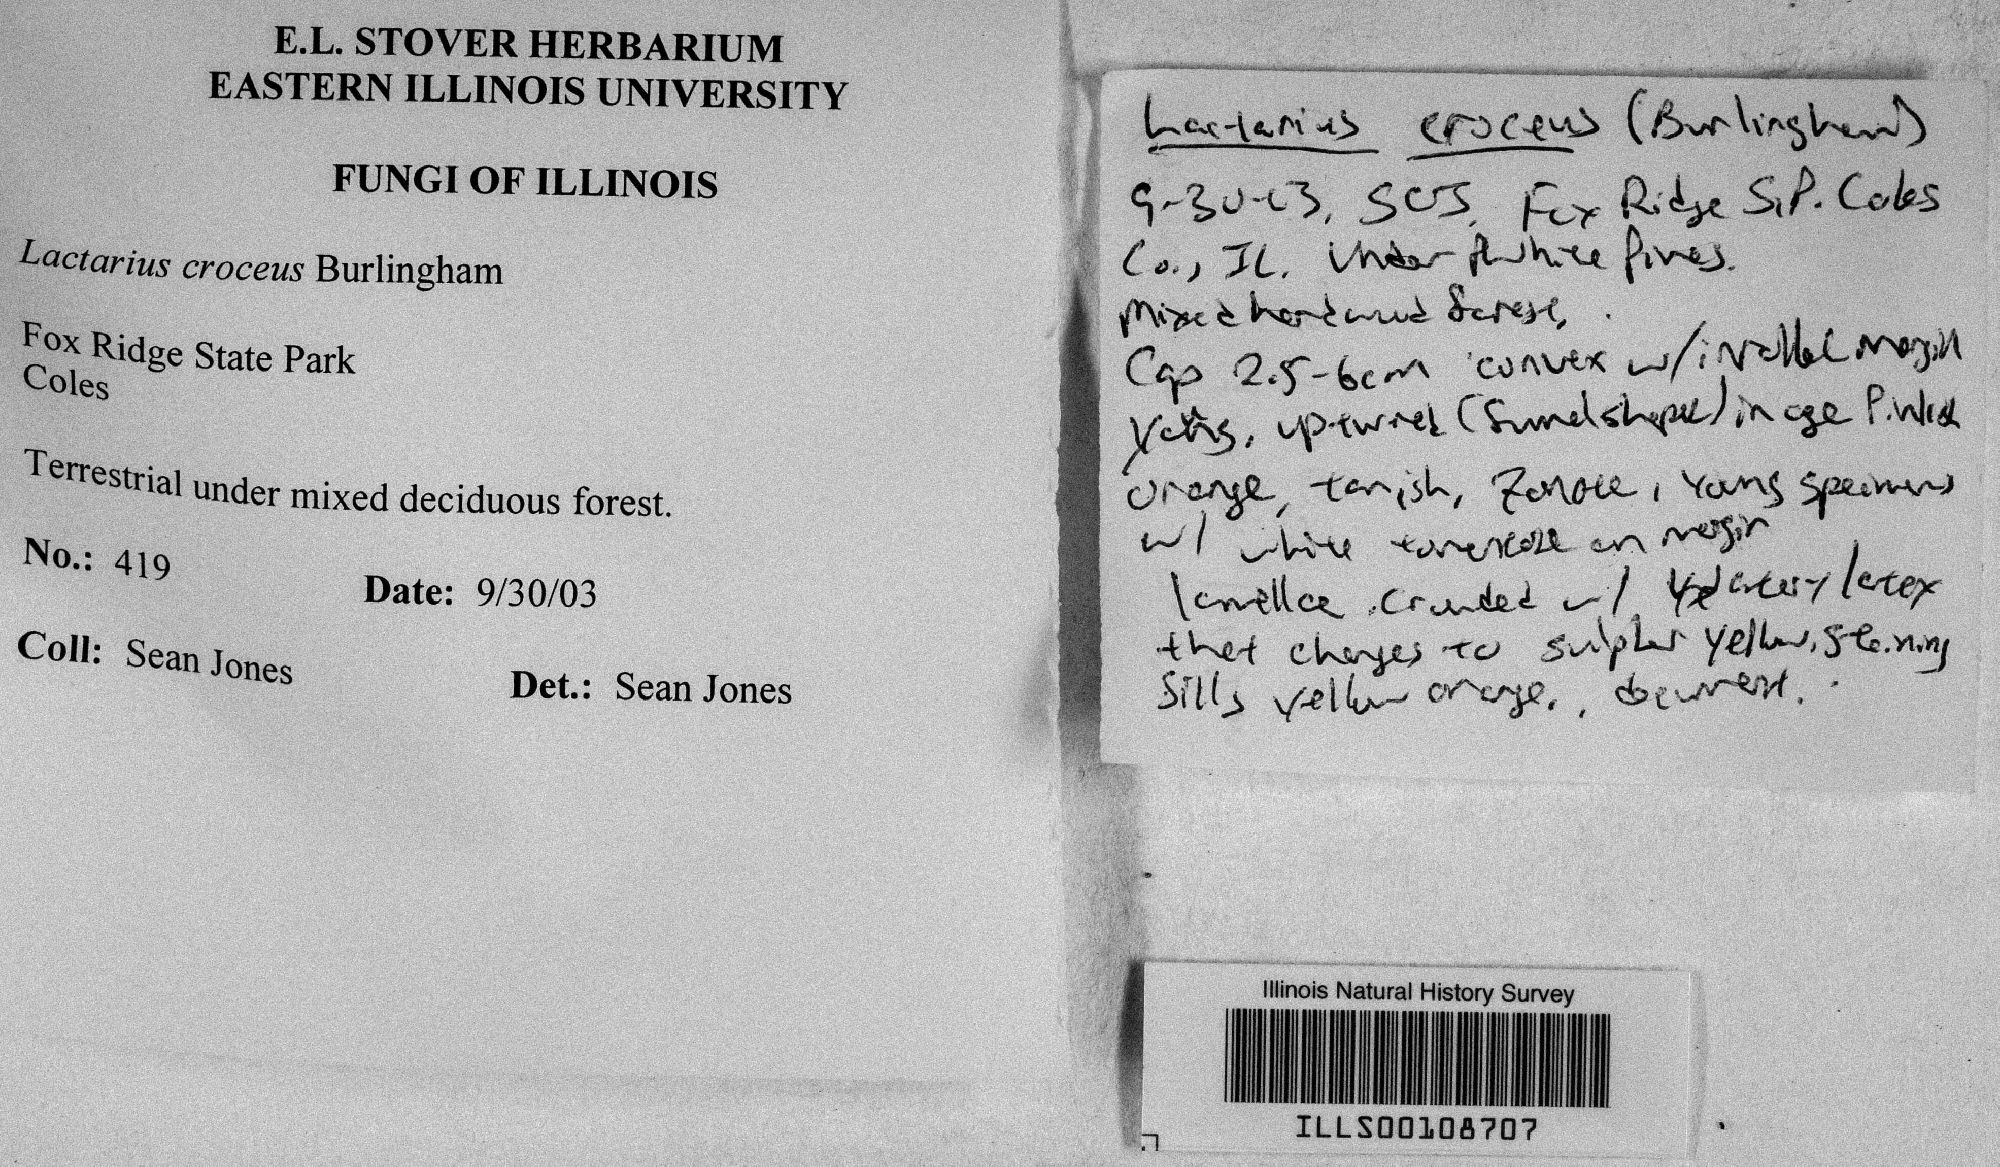 E.L. STOVER HERBARIUM
EASTERN ILLINOIS UNIVERSITY
FUNGI OF ILLINOIS
Lactarius croceus Burlingham
Fox Ridge State Park
Coles
Terrestrial under mixed deciduous forest.
No.: 419 Date: 9/30/03
Coll: Sean Jones Det.: Sean Jones
Lactarius croceus (Burlingham)
9-30-03, SCJ, Fox Ridge S.P. Coles
Co., IL. Under white pines.
Mixed hardwood forest,
Cap 2.5-6cm convex w/ inrolled margin
young, upturned (funnel shaped) in age Pinkish
orange, tanish, Zonate, Young specimens
w/ white on margin
lamellae crowded w/ watery latex
that changes to sulphur yellow, staining
gills yellow orange, decurrent.
Illinois Natural History Survey
ILLS00108707